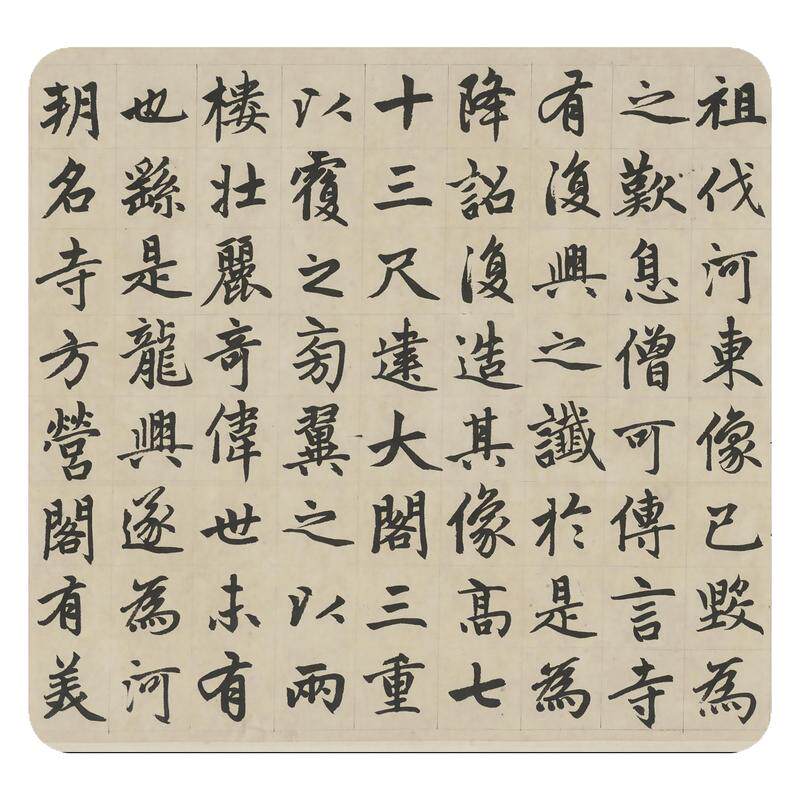 祖伐河東像已毀為
之歎息僧可傳言寺
有復興之讖於是為
降詔復造其像高七
十三尺建大閣三重
以覆之旁翼之以兩
樓壯麗奇偉世未有
也繇是龍興遂為河
朔名寺方營閣有美